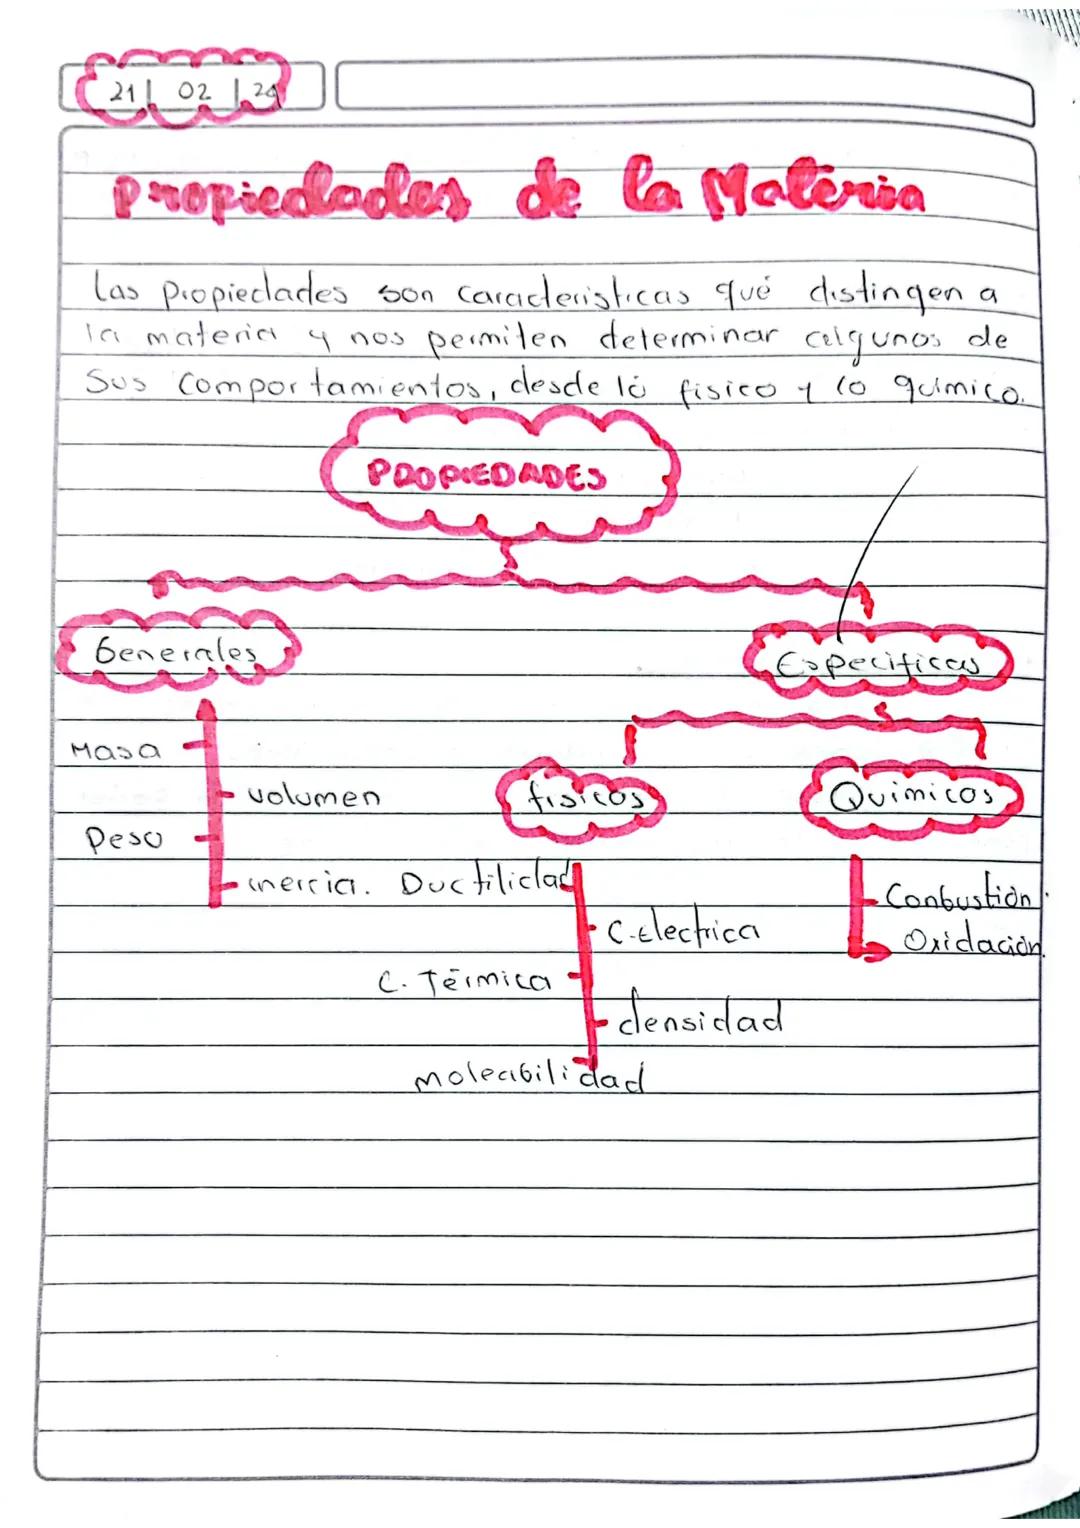 21 | 02 | 24
Propiedades de la Materia
Las propiedades son caracteristicas qué distingen a
la materia y nos permiten determinar algunos de
Sus comportamientos, desde ló fisico y lo químico.
PROPIEDADES
Generales
Especificas
Masa
volumen
Peso
inercia.
fisicos
Químicos
Ductilidad
C.Electrica
C. Térmica
densidad
moleabilidad
Conbustión
Oxidación.